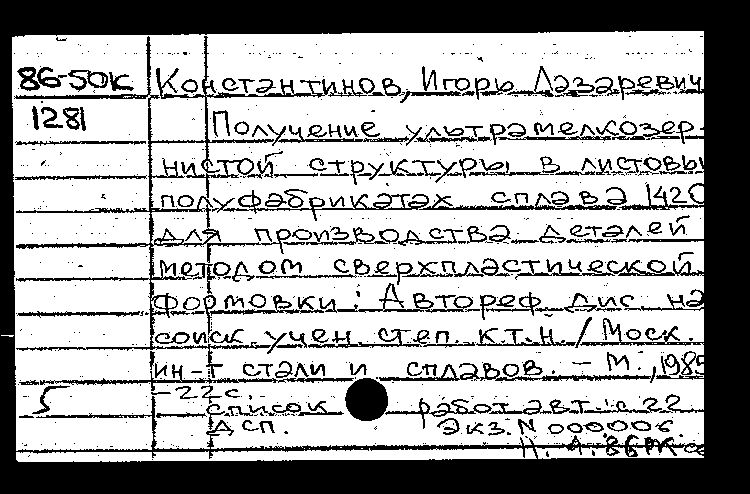 86-50К Константинов, Игорь Лазаревич
1281 Получение ультрамелкозер-
нистой структуры в листовы
полуфабрикатах сплава 1420
для производства деталей
методом сверхпластической
формовки: Автореф. дис. на
соиск. учен. степ. к.т.н. / Моск.
ин-т стали и сплавов. - М., 1985
5 -22 с.
список работ авт.: с 22
ДСП. Экз. N 000006